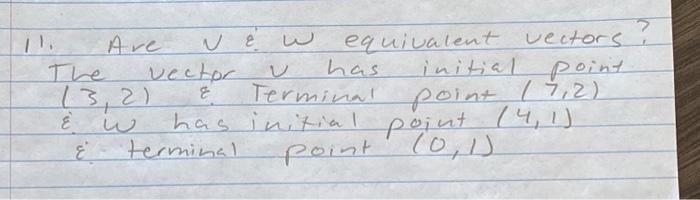 11. Are v & w equivalent vectors?
The vector v has initial point
(3,2) & Terminal point (7,2)
& w has initial point (4,1)
& terminal point (0,1)